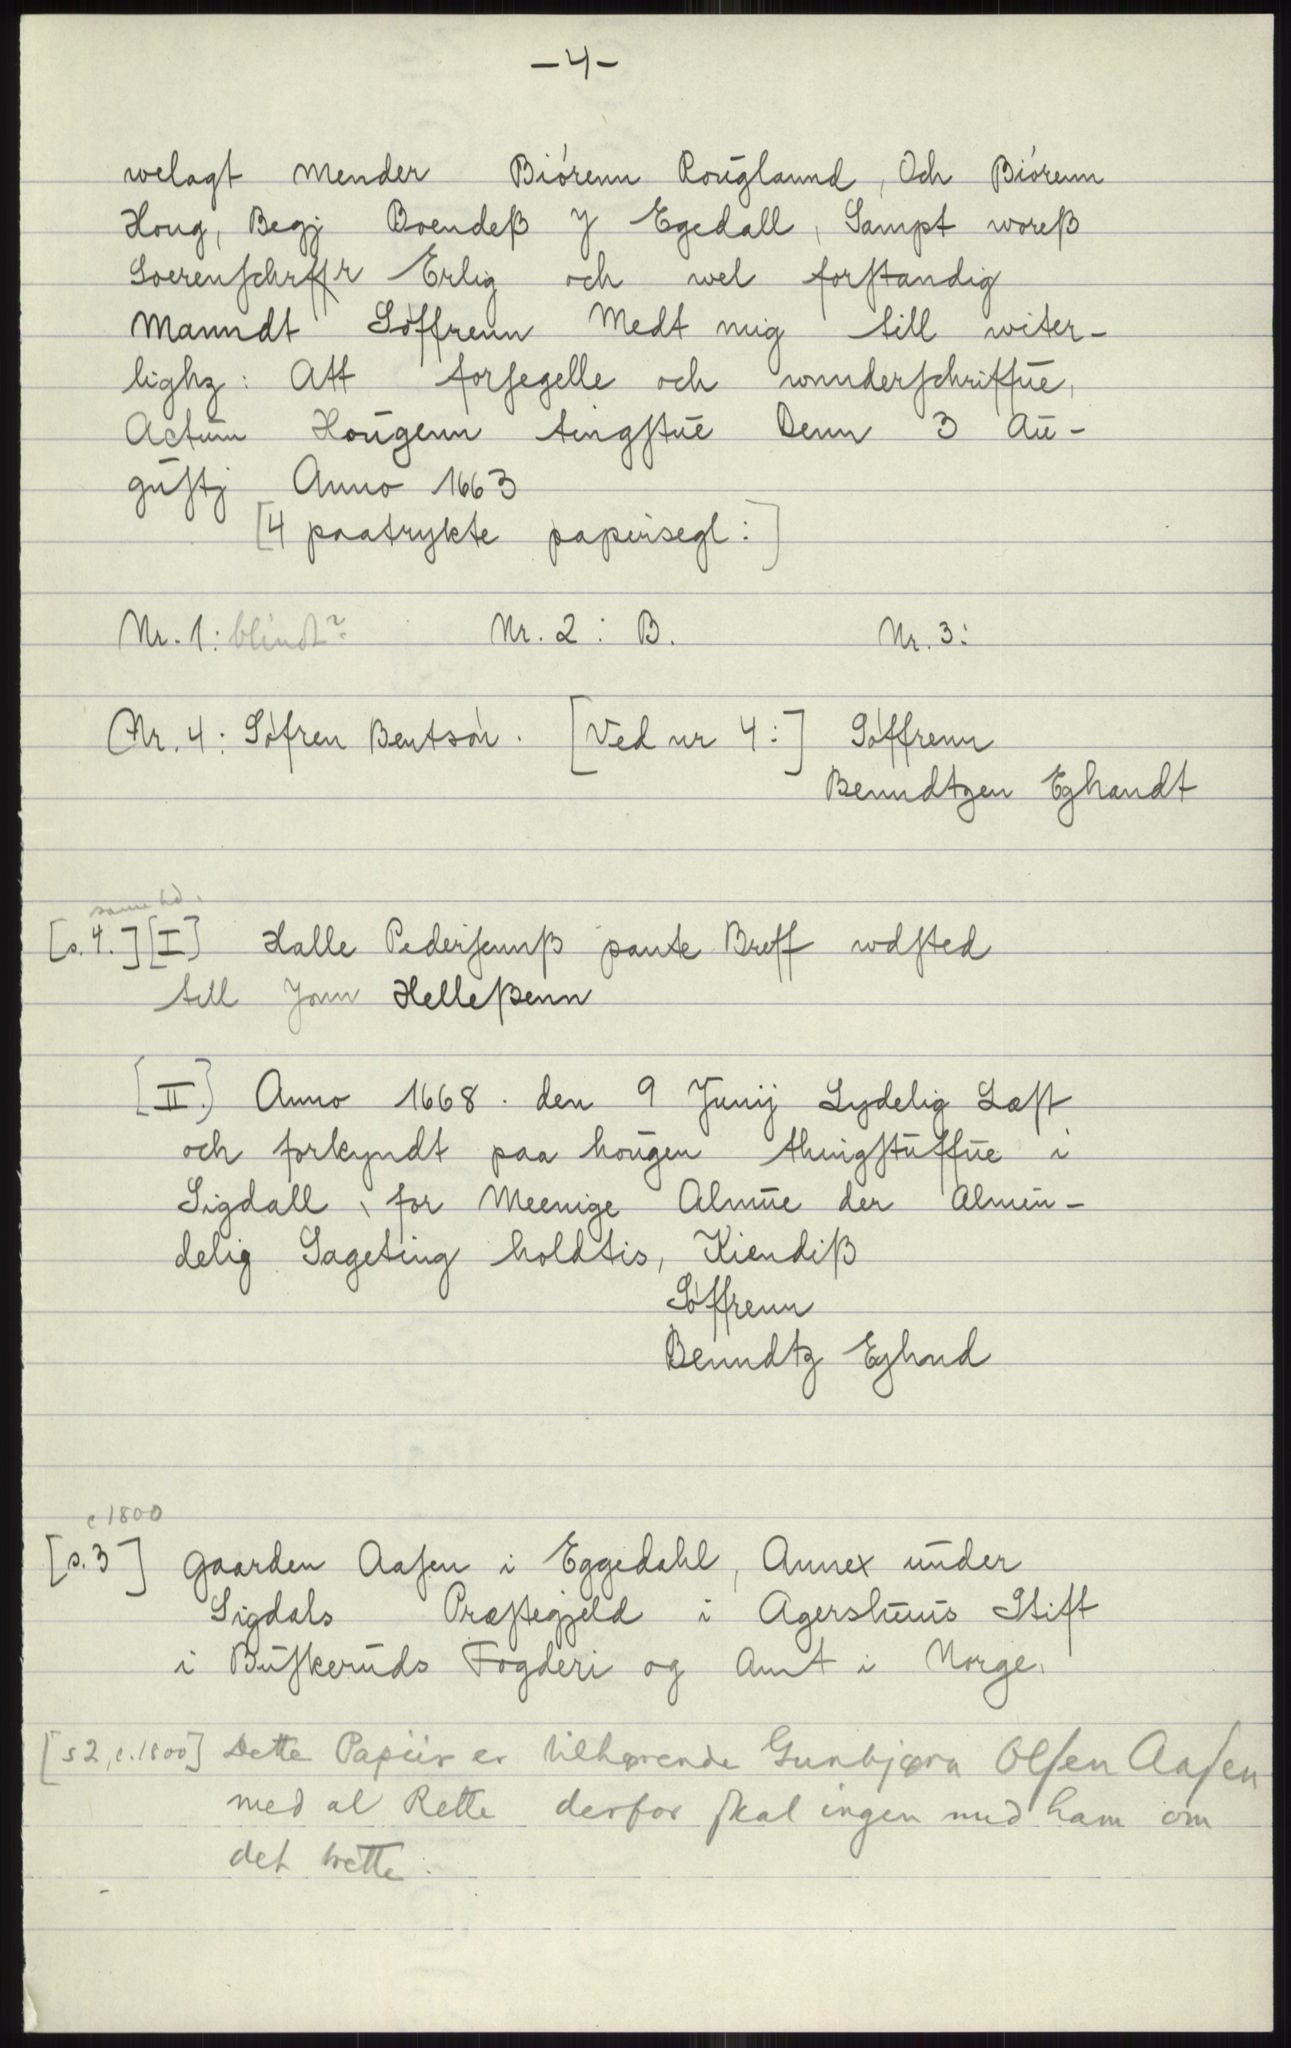 -4-
welagt Mender Biórenn Rouglannd, Och Biórenn
Houg, Begj Boendeß J Egedall, Sampt woreß
Soerenschrffr Erlig och wel forstandig
Manndt Sóffrenn Medt mig till witer-
lighz: Att forsegelle och wnnderschriffue,
Actum Hougenn tingstue Denn 3 Au-
gustj Anno 1663
[4 paatrykte papirsegl:]
Nr. 1: blindt? Nr. 2: B. Nr. 3:
Nr. 4: Sófren Bentsón. [Ved nr 4:] Sóffrenn
Benndtzen Eghandt
samme hd.
[s. 4.] [I] Halle Pedersennß pante Breff wdsted
till Jonn Helleßenn
[II.] Anno 1668. den 9 Junij Lydelig Læst
och forkyndt paa hougen thingstuffue i
Sigdall, for Meenige Almue der Almin-
delig Sageting holdtis, Kiendiß
Sóffrenn
Benndtz Eghnd
c 1800
[s. 3] Gaarden Aasen i Eggedahl, Annex under
Sigdals Præstegjeld i Agershuus Stift
i Buskeruds Fogderi og Amt i Norge.
[s 2, c. 1800] Dette Papiir er tilhørende Gunbjørn Olsen Aasen
med al Rette derfor skal ingen med ham om
det trette.